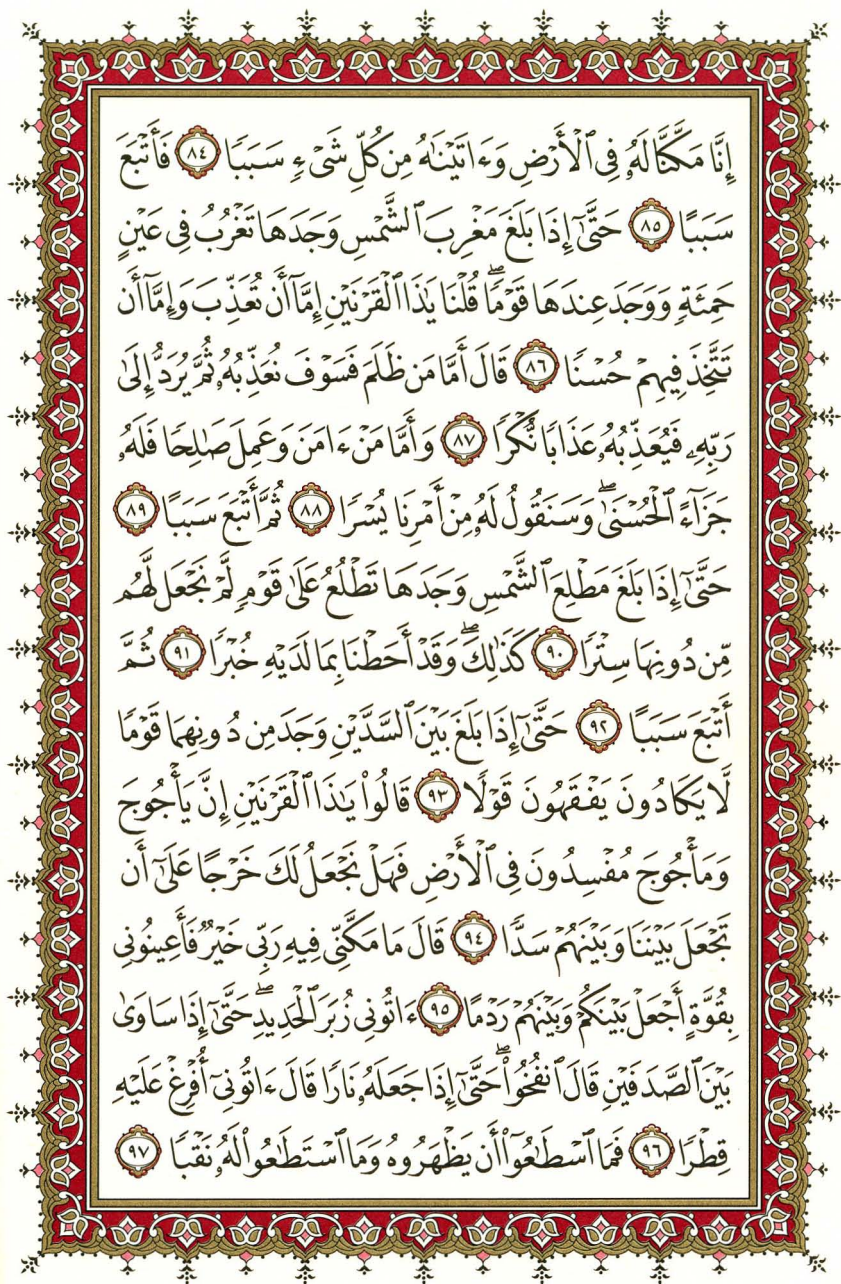 إِنَّا مَكَّنَّا لَهُۥ فِى ٱلْأَرْضِ وَءَاتَيْنَٰهُ مِن كُلِّ شَىْءٍ سَبَبًا ٨٤ فَأَتْبَعَ
سَبَبًا ٨٥ حَتَّىٰٓ إِذَا بَلَغَ مَغْرِبَ ٱلشَّمْسِ وَجَدَهَا تَغْرُبُ فِى عَيْنٍ
حَمِئَةٍ وَوَجَدَ عِندَهَا قَوْمًا ۖ قُلْنَا يَٰذَا ٱلْقَرْنَيْنِ إِمَّآ أَن تُعَذِّبَ وَإِمَّآ أَن
تَتَّخِذَ فِيهِمْ حُسْنًا ٨٦ قَالَ أَمَّا مَن ظَلَمَ فَسَوْفَ نُعَذِّبُهُۥ ثُمَّ يُرَدُّ إِلَىٰ
رَبِّهِۦ فَيُعَذِّبُهُۥ عَذَابًا نُّكْرًا ٨٧ وَأَمَّا مَنْ ءَامَنَ وَعَمِلَ صَٰلِحًا فَلَهُۥ
جَزَآءً ٱلْحُسْنَىٰ ۖ وَسَنَقُولُ لَهُۥ مِنْ أَمْرِنَا يُسْرًا ٨٨ ثُمَّ أَتْبَعَ سَبَبًا ٨٩
حَتَّىٰٓ إِذَا بَلَغَ مَطْلِعَ ٱلشَّمْسِ وَجَدَهَا تَطْلُعُ عَلَىٰ قَوْمٍ لَّمْ نَجْعَل لَّهُم
مِّن دُونِهَا سِتْرًا ٩٠ كَذَٰلِكَ ۖ وَقَدْ أَحَطْنَا بِمَا لَدَيْهِ خُبْرًا ٩١ ثُمَّ
أَتْبَعَ سَبَبًا ٩٢ حَتَّىٰٓ إِذَا بَلَغَ بَيْنَ ٱلسَّدَّيْنِ وَجَدَ مِن دُونِهِمَا قَوْمًا
لَّا يَكَادُونَ يَفْقَهُونَ قَوْلًا ٩٣ قَالُوا۟ يَٰذَا ٱلْقَرْنَيْنِ إِنَّ يَأْجُوجَ
وَمَأْجُوجَ مُفْسِدُونَ فِى ٱلْأَرْضِ فَهَلْ نَجْعَلُ لَكَ خَرْجًا عَلَىٰٓ أَن
تَجْعَلَ بَيْنَنَا وَبَيْنَهُمْ سَدًّا ٩٤ قَالَ مَا مَكَّنِّى فِيهِ رَبِّى خَيْرٌ فَأَعِينُونِى
بِقُوَّةٍ أَجْعَلْ بَيْنَكُمْ وَبَيْنَهُمْ رَدْمًا ٩٥ ءَاتُونِى زُبَرَ ٱلْحَدِيدِ ۖ حَتَّىٰٓ إِذَا سَاوَىٰ
بَيْنَ ٱلصَّدَفَيْنِ قَالَ ٱنفُخُوا۟ ۖ حَتَّىٰٓ إِذَا جَعَلَهُۥ نَارًا قَالَ ءَاتُونِىٓ أُفْرِغْ عَلَيْهِ
قِطْرًا ٩٦ فَمَا ٱسْطَٰعُوٓا۟ أَن يَظْهَرُوهُ وَمَا ٱسْتَطَٰعُوا۟ لَهُۥ نَقْبًا ٩٧